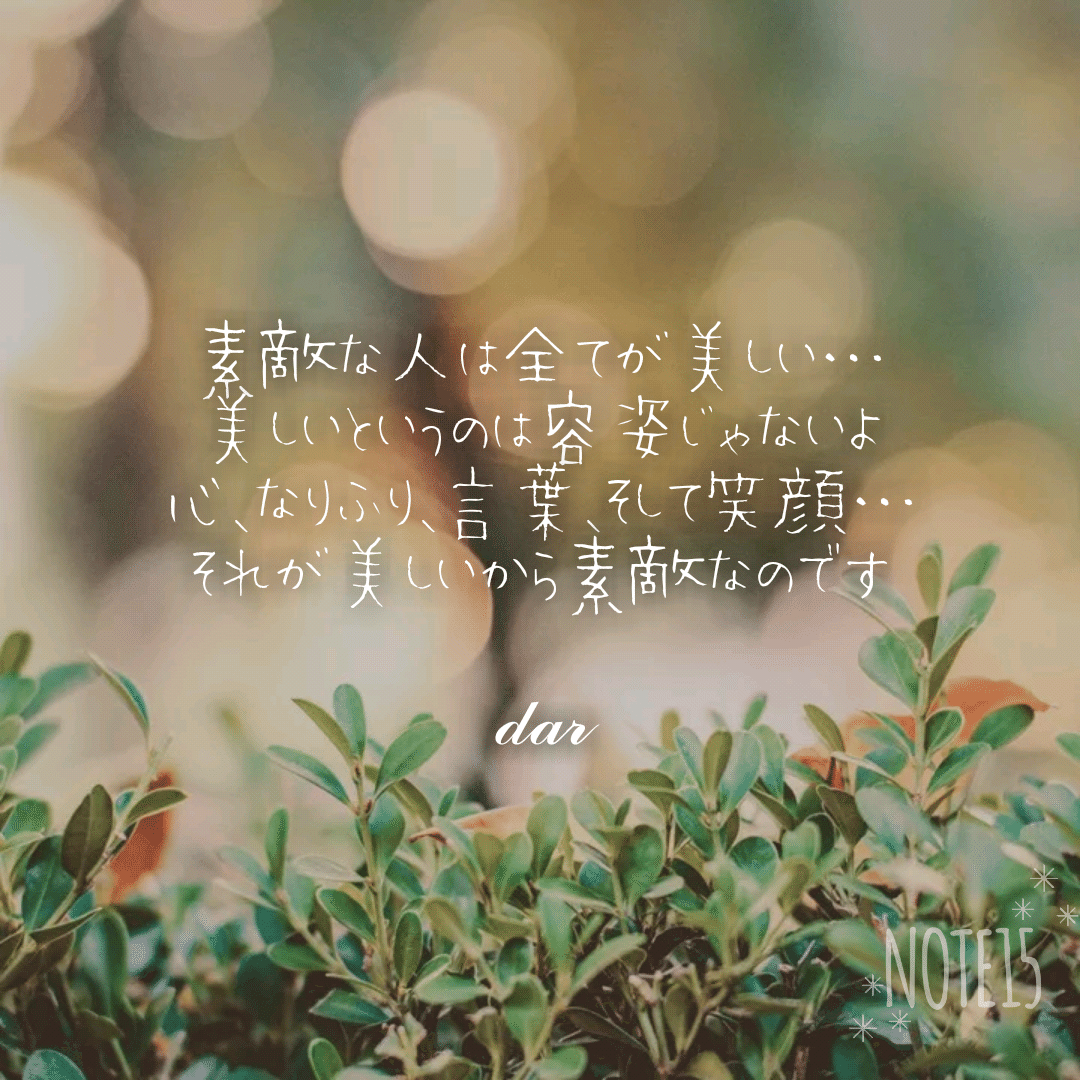 素敵な人は全てが美しい・・・
美しいというのは容姿じゃないよ
心、なりふり、言葉、そして笑顔・・・
それが美しいから素敵なのです
dar
NOTE15